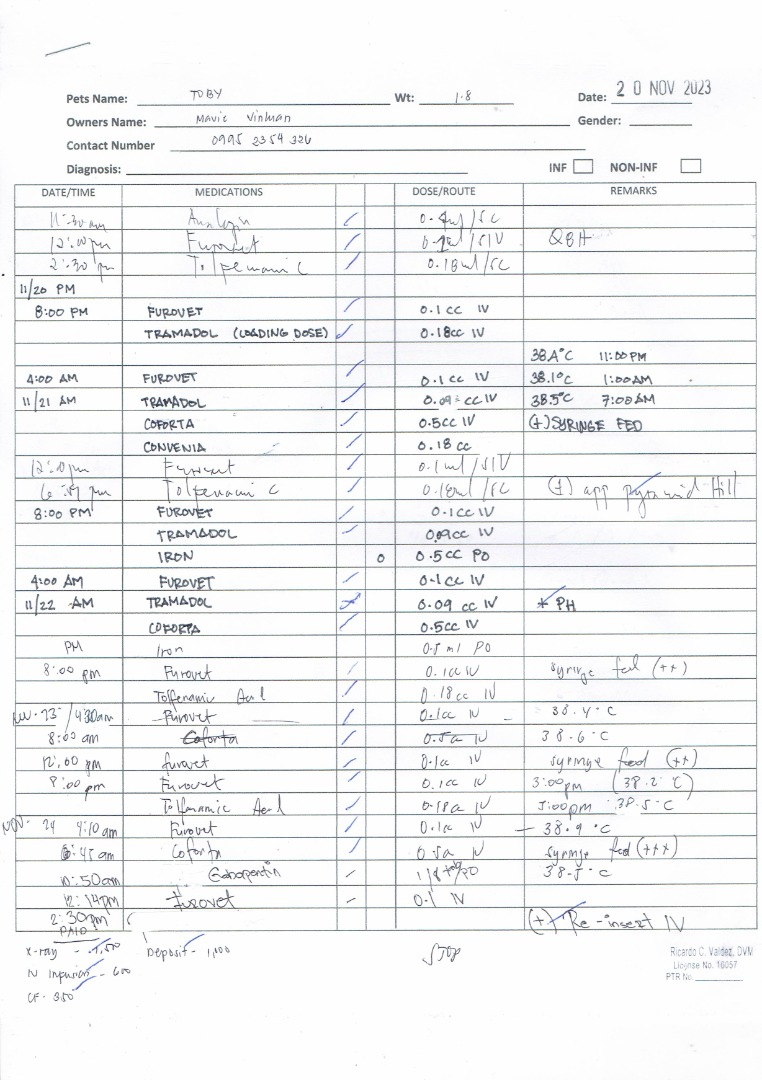 Pets Name: TOBY Wt: 1.8 Date: 20 NOV 2023
Owners Name: Mavic Vinluan Gender:
Contact Number 0995 2354 326
Diagnosis: INF NON-INF
DATE/TIME MEDICATIONS DOSE/ROUTE REMARKS
11:30 am 0.4ml/SC
12:00pm Furovet Q8H
2:30 pm 0.18ml/SC
11/20 PM
8:00 PM FUROVET 0.1cc IV
TRAMADOL (LOADING DOSE) 0.18cc IV
11:00PM
4:00 AM FUROVET 0.1cc IV 38.1°C 1:00AM
11/21 AM TRAMADOL 0.09 cc IV 38.5°C 7:00AM
COFORTA 0.5cc IV (+) SYRINGE FED
CONVENIA 0.18 cc
12:00pm Furovet 0.1ml/SIV
pm 0.18ml/SC (+) app
8:00 PM FUROVET 0.1cc IV
TRAMADOL 0.09cc IV
IRON 0 0.5cc PO
4:00 AM FUROVET 0.1cc IV
11/22 AM TRAMADOL 0.09 cc IV * PH
COFORTA 0.5cc IV
PM Iron 0.5 ml PO
8:00 pm Furovet 0.1cc IV syringe fed (++)
Tolfenamic Acid 0.18cc IV
Nov. 23 / 4:30am Furovet 0.1cc IV 38.4°C
8:00 am Coforta 0.5cc IV 38.6°C
12:00 pm furovet 0.1cc IV syringe feed (++)
8:00pm Furovet 0.1cc IV 3:00pm (38.2°C)
Tolfenamic Acid 0.18cc IV 5:00pm 38.5°C
NOV. 24 4:10am Furovet 0.1cc IV - 38.9°C
6:45am Coforta 0.5cc IV syringe fed (+++)
10:50am Gabapentin 1/8 tab/PO 38.5°C
12:14pm Furovet 0.1 IV
2:30pm (+) Re-insert IV
PAID
X-ray - 1,500 Deposit - 1,000 STOP
IV Infusion - 600
CF - 350
Ricardo C. Valdez, DVM
License No. 16057
PTR No.